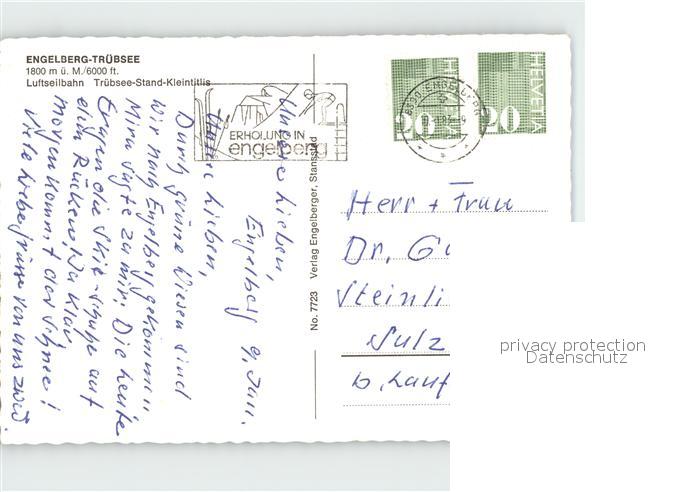 ENGELBERG-TRÜBSEE
1800 m ü. M./6000 ft.
Luftseilbahn Trübsee-Stand-Kleintitlis
ERHOLUNG IN
engelberg
HELVETIA
20
HELVETIA
20
No. 7723 Verlag Engelberger, Stansstad
Engelberg 9. Jan.
Unsere Lieben,
Lieben,
Durch grüne Wiesen sind
wir nach Engelberg gekommen.
Mira sagte zu mir: Die Leute
tragen die Skie
den Rücken. Na klar
morgen kommt der Schnee!
Viele liebe Grüsse von uns zwei.
Herr + Frau
Dr. Gu
Steinli
Sulz
b. Lauf
privacy protection
Datenschutz